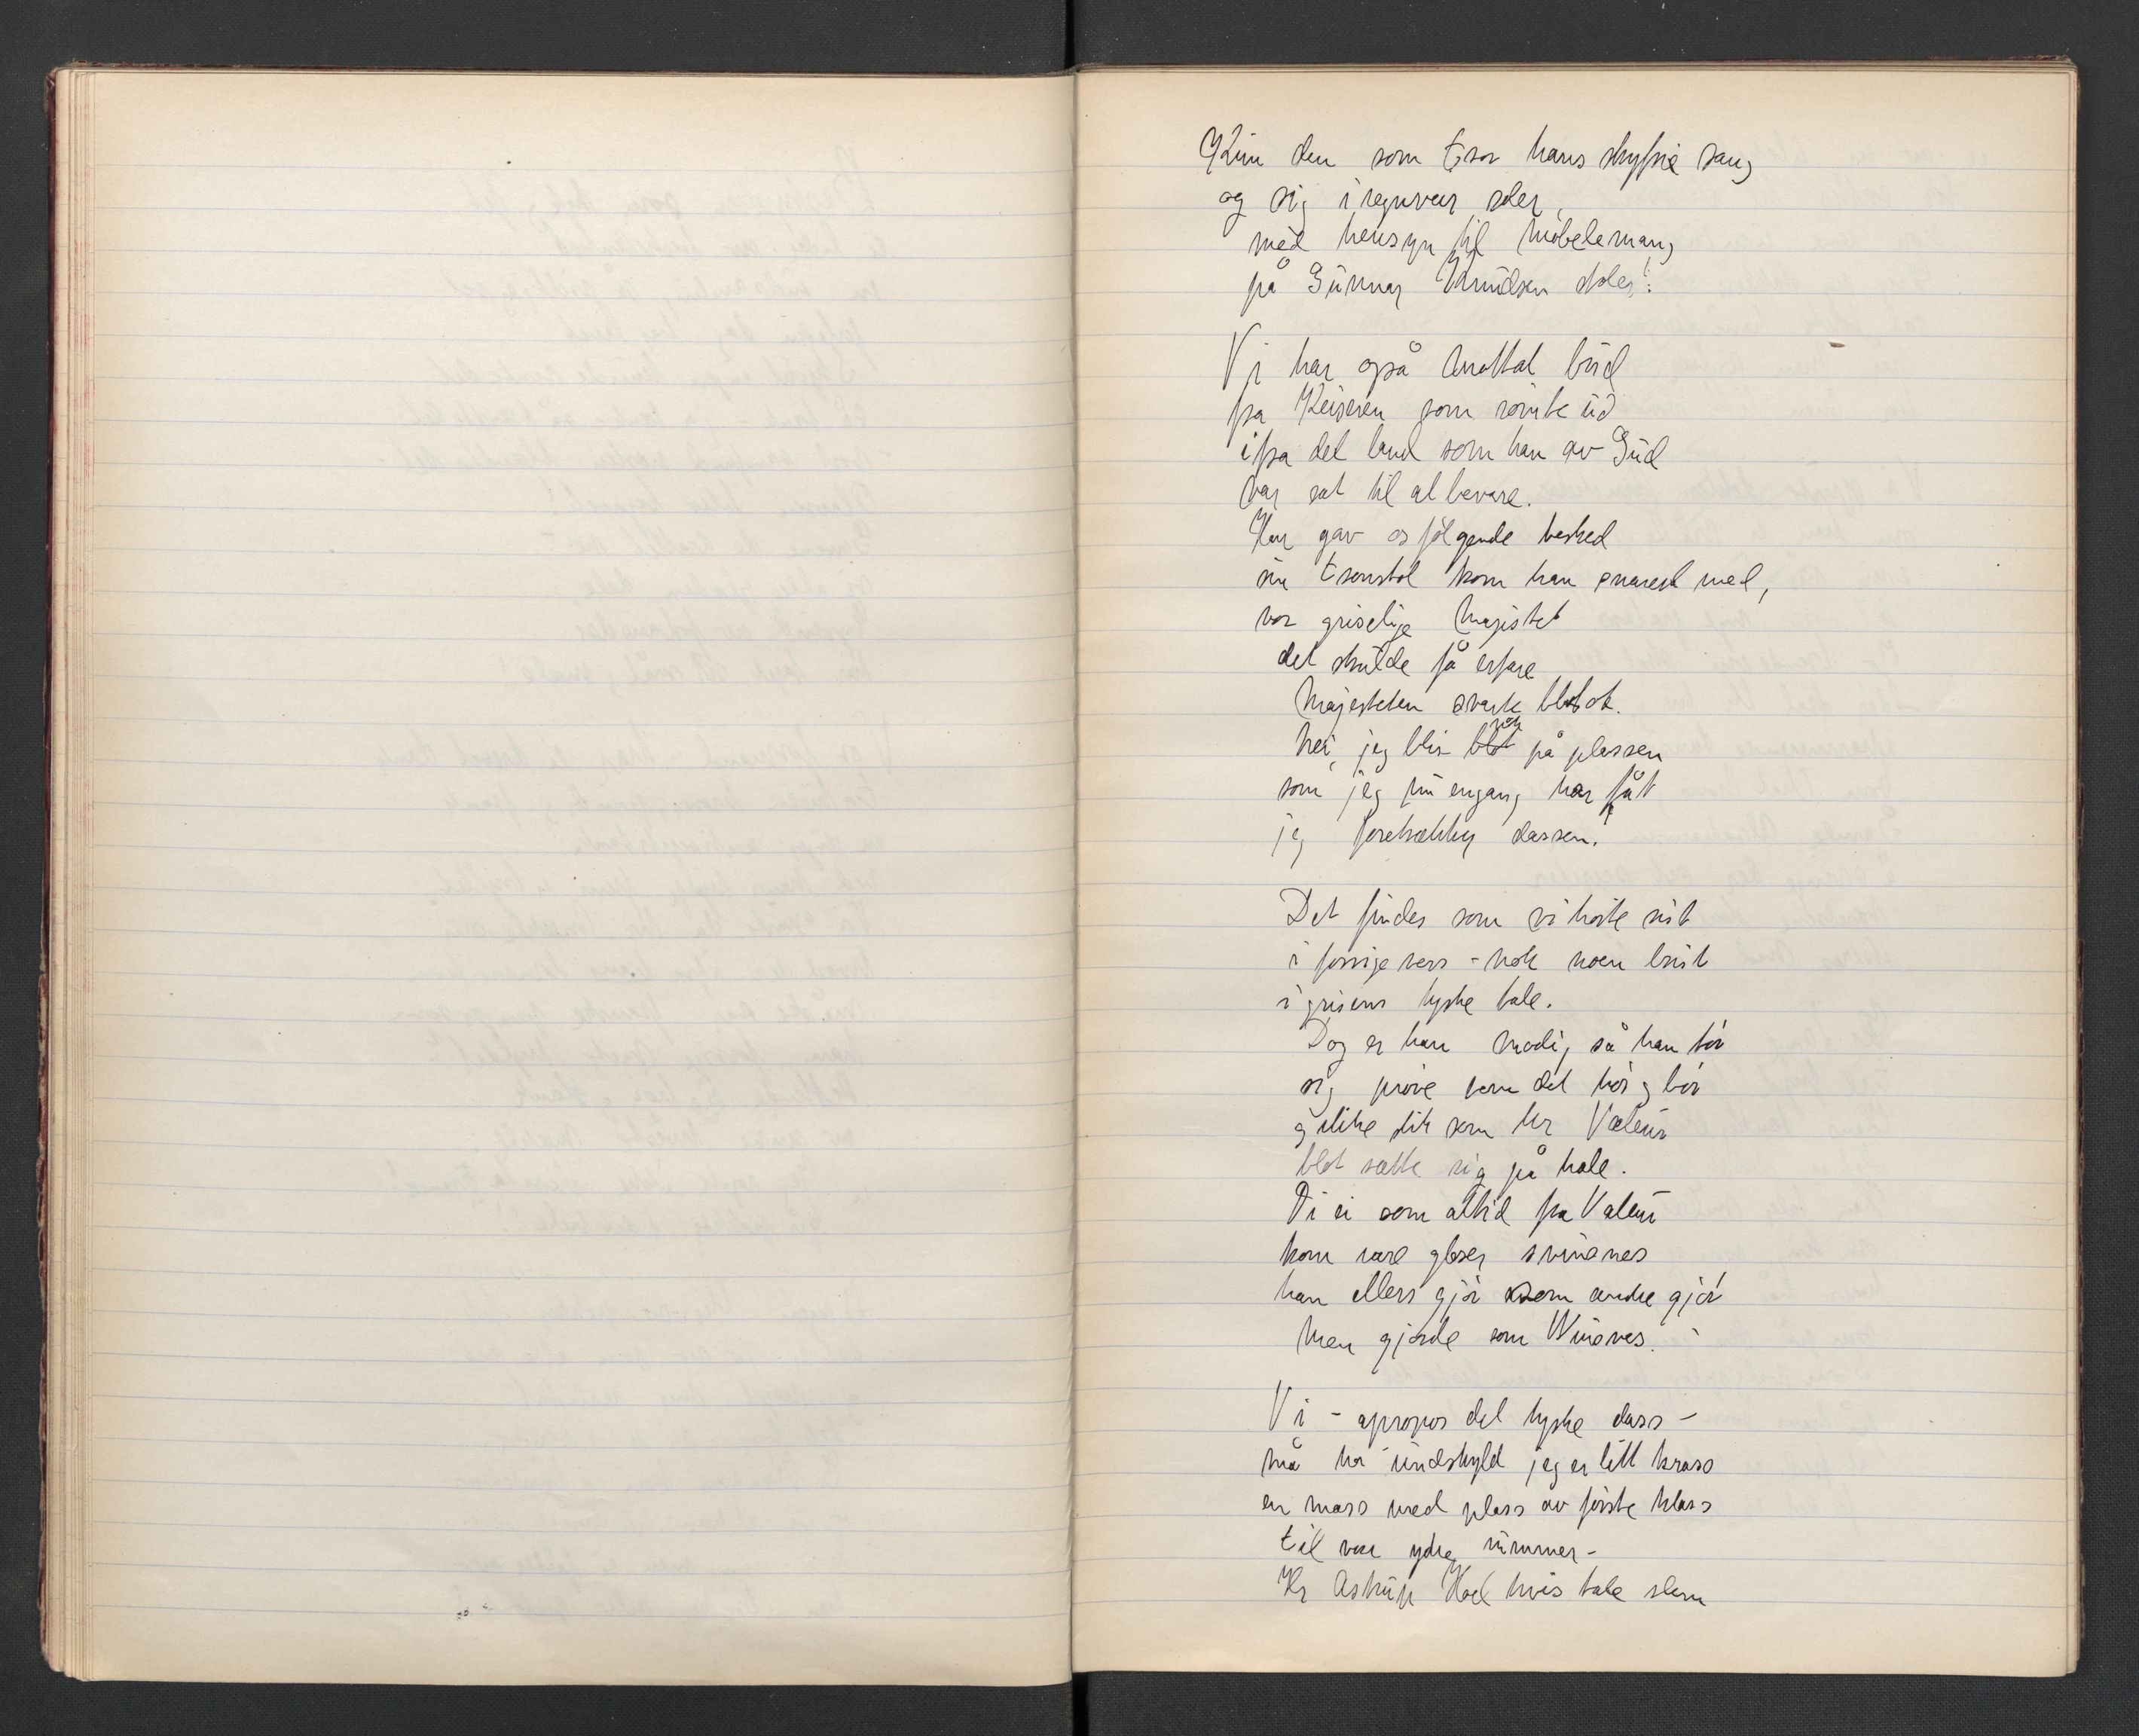 Kun den som tror hans skyfrie sang
og sig i regnveir soler,
med hensyn til møbelemang
på Gunnar Knudsen stoler!
Vi har også mottat bud
fra Keiseren som rømte ud
ifra det land som han av Gud
var sat til at bevare.
Han gav os følgende besked
sin tronstol kom han snarest med,
vor griselige Majestet
det skulde få erfare
Majesteten svarte blot at.
Nei, jeg blir nok på plassen
som jeg nu engang har fåt
jeg foretrækker dassen!
Det findes som vi hørte sist
i forrige vers - nok noen brist
i grisens tyske tale.
Dog er han modig så han tør
sig prøve som det hør og bør
og ikke slik som hr Valeur
blot sætte sig på hale.
Vi ei som altid fra Valeur
kom bare gloser
han ellers gjør som andre gjør
men gjorde som
Vi - apropos det tyske dass -
må ha undskyld jeg er litt krass
en mass med plass av første klass
til vore ydre rummer -
Hr Astrup Hoel hvis tale slem